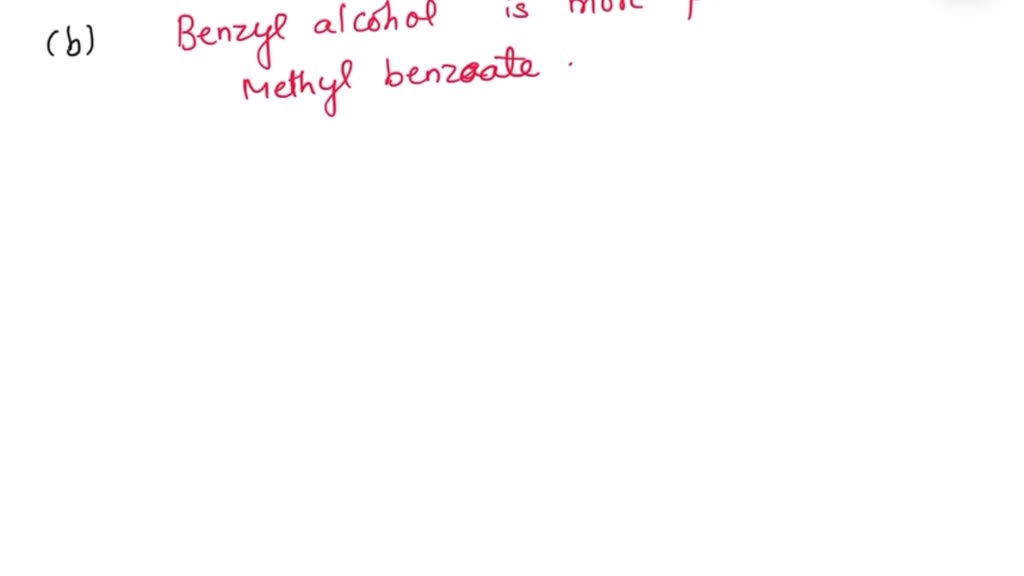 (b) Benzyl alcohol is more
Methyl benzoate .